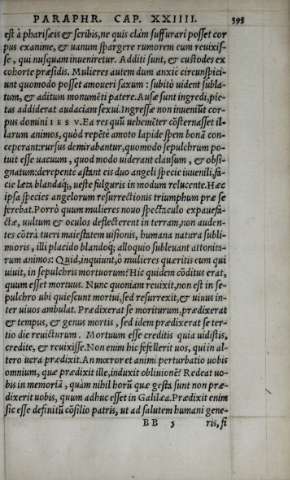 PARAPHR. CAP. XXIIII. 393
est à pharisæis & scribis, ne quis clàm suffurari posset cor
pus exanime, & uanum spargere rumorem eum reuixis-
se, qui nusquam inueniretur. Additi sunt, & custodes ex
cohorte præsidis. Mulieres autem dum anxiè circunspici-
unt quomodo posset amoueri saxum: subitò uident subla-
tum, & aditum monumẽti patere. Ausæ sunt ingredi, pie-
tas addiderat audaciam sexui. Ingressæ non inueniũt cor-
pus domini IESV. Ea res quũ uehemẽter cõsternasset il-
larum animos, quòd repẽtè amoto lapide spem bonã con-
ceperant: rursus demirabantur, quomodo sepulchrum po-
tuit esse uacuum, quod modo uiderant clausum, & obsi-
gnatum: derepente astant eis duo angeli specie iuuenili, fa-
cie læta blandaq́;, ueste fulguris in modum relucente. Hæc
ipsa species angelorum resurrectionis triumphum præ se
ferebat. Porrò quum mulieres nouo spectaculo expauefa-
ctæ, uultum & oculos deflecterent in terram, non auden-
tes cõtrà tueri maiestatem uisionis, humana natura subli-
moris, illi placido blandoq́; alloquio subleuant attonita-
rum animos: Quid, inquiunt, ò mulieres quæritis eum qui
uiuit, in sepulchris mortuorum? Hic quidem cõditus erat,
quum esset mortuus. Nunc quoniam reuixit, non est in se-
pulchro ubi quiescunt mortui, sed resurrexit, & uiuus in-
ter uiuos ambulat. Prædixerat se moriturum, prædixerat
& tempus, & genus mortis, sed idem prædixerat se ter-
tio die reuicturum. Mortuum esse creditis quia uidistis,
credite, & reuixisse. Non enim hic fefellerit uos, qui in al-
tero uera prædixit. An mœror et animi perturbatio uobis
omnium, quæ prædixit ille, induxit obliuionẽ? Redeat uo-
bis in memoriã, quàm nihil horũ quæ gesta sunt non præ-
dixerit uobis, quum adhuc esset in Galilæa. Prædixit enim
sic esse definitũ cõsilio patris, ut ad salutem humani gene-
BB 5 ris, fi